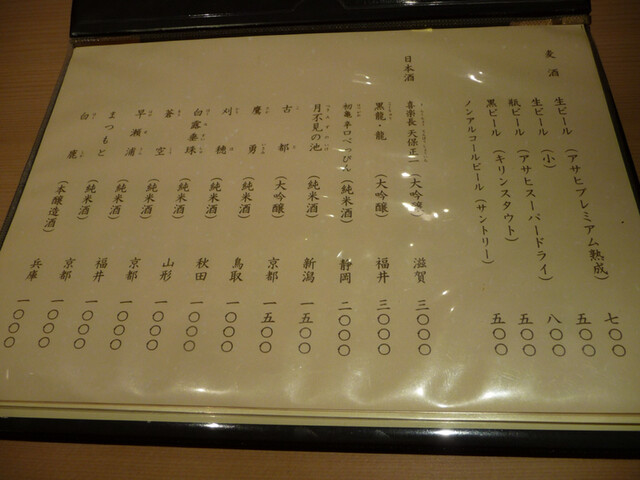 麦酒
生ビール（アサヒプレミアム熟成） 七〇〇
生ビール（小） 五〇〇
瓶ビール（アサヒスーパードライ） 八〇〇
黒ビール（キリンスタウト） 五〇〇
ノンアルコールビール（サントリー） 五〇〇
日本酒
喜楽長 天保正一（大吟醸） 滋賀 三〇〇〇
黒龍・龍（大吟醸） 福井 三〇〇〇
初亀 辛口べっぴん（純米酒） 静岡 二〇〇〇
月不見の池（純米酒） 新潟 一五〇〇
古都（大吟醸） 京都 一五〇〇
鷹勇（純米酒） 鳥取 一〇〇〇
刈穂（純米酒） 秋田 一〇〇〇
白露垂珠（純米酒） 山形 一〇〇〇
蒼空（純米酒） 京都 一〇〇〇
早瀬浦（純米酒） 福井 一〇〇〇
まつもと（純米酒） 京都 一〇〇〇
（本醸造酒） 兵庫 一〇〇〇